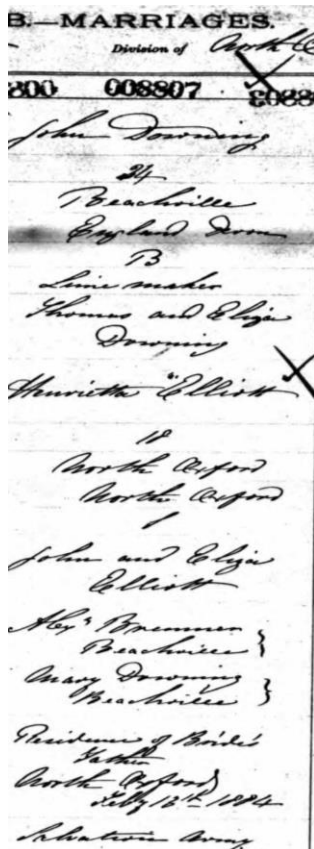 B.—MARRIAGES.
Division of North
008807
John Downing
24
Beachville
England Devon
B
Lime maker
Thomas and Eliza
Downing
Henrietta Elliott
18
North Oxford
North Oxford
S
John and Eliza
Elliott
Alexr Bremner
Beachville
Mary Downing
Beachville
Residence of Bride's
Father
North Oxford
Feby 12th 1884
Salvation Army